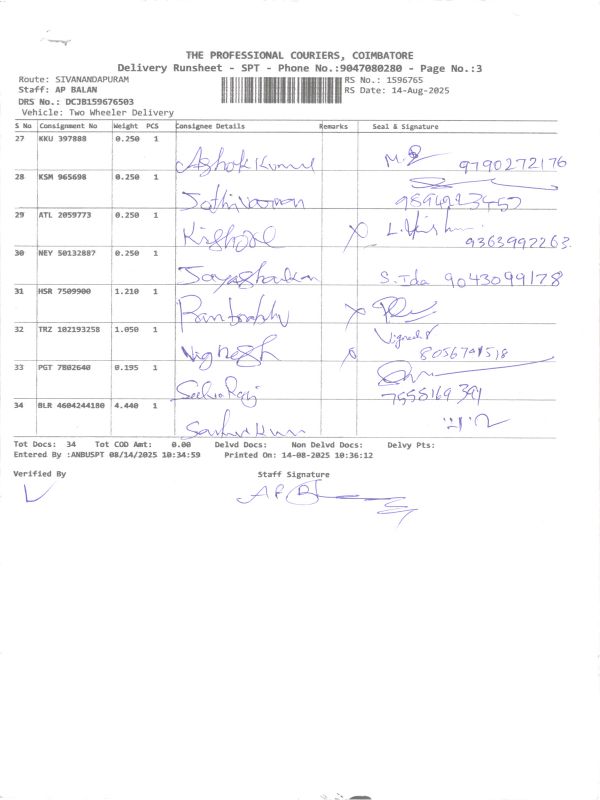 THE PROFESSIONAL COURIERS, COIMBATORE
Delivery Runsheet - SPT - Phone No.:9047080280 - Page No.:3
Route: SIVANANDAPURAM RS No.: 1596765
Staff: AP BALAN RS Date: 14-Aug-2025
DRS No.: DCJB159676503
Vehicle: Two Wheeler Delivery
S No Consignment No Weight PCS Consignee Details Remarks Seal & Signature
27 KKU 397888 0.250 1
Ashok Kumar 9790272176
28 KSM 965698 0.250 1
29 ATL 2059773 0.250 1
Kishore 9363992263
30 NEY 50132887 0.250 1
S. Ida 9043099178
31 HSR 7509900 1.210 1
32 TRZ 102193258 1.050 1
Vignesh
33 PGT 7802640 0.195 1
34 BLR 4604244180 4.440 1
Tot Docs: 34 Tot COD Amt: 0.00 Delvd Docs: Non Delvd Docs: Delvy Pts:
Entered By :ANBUSPT 08/14/2025 10:34:59 Printed On: 14-08-2025 10:36:12
Verified By Staff Signature